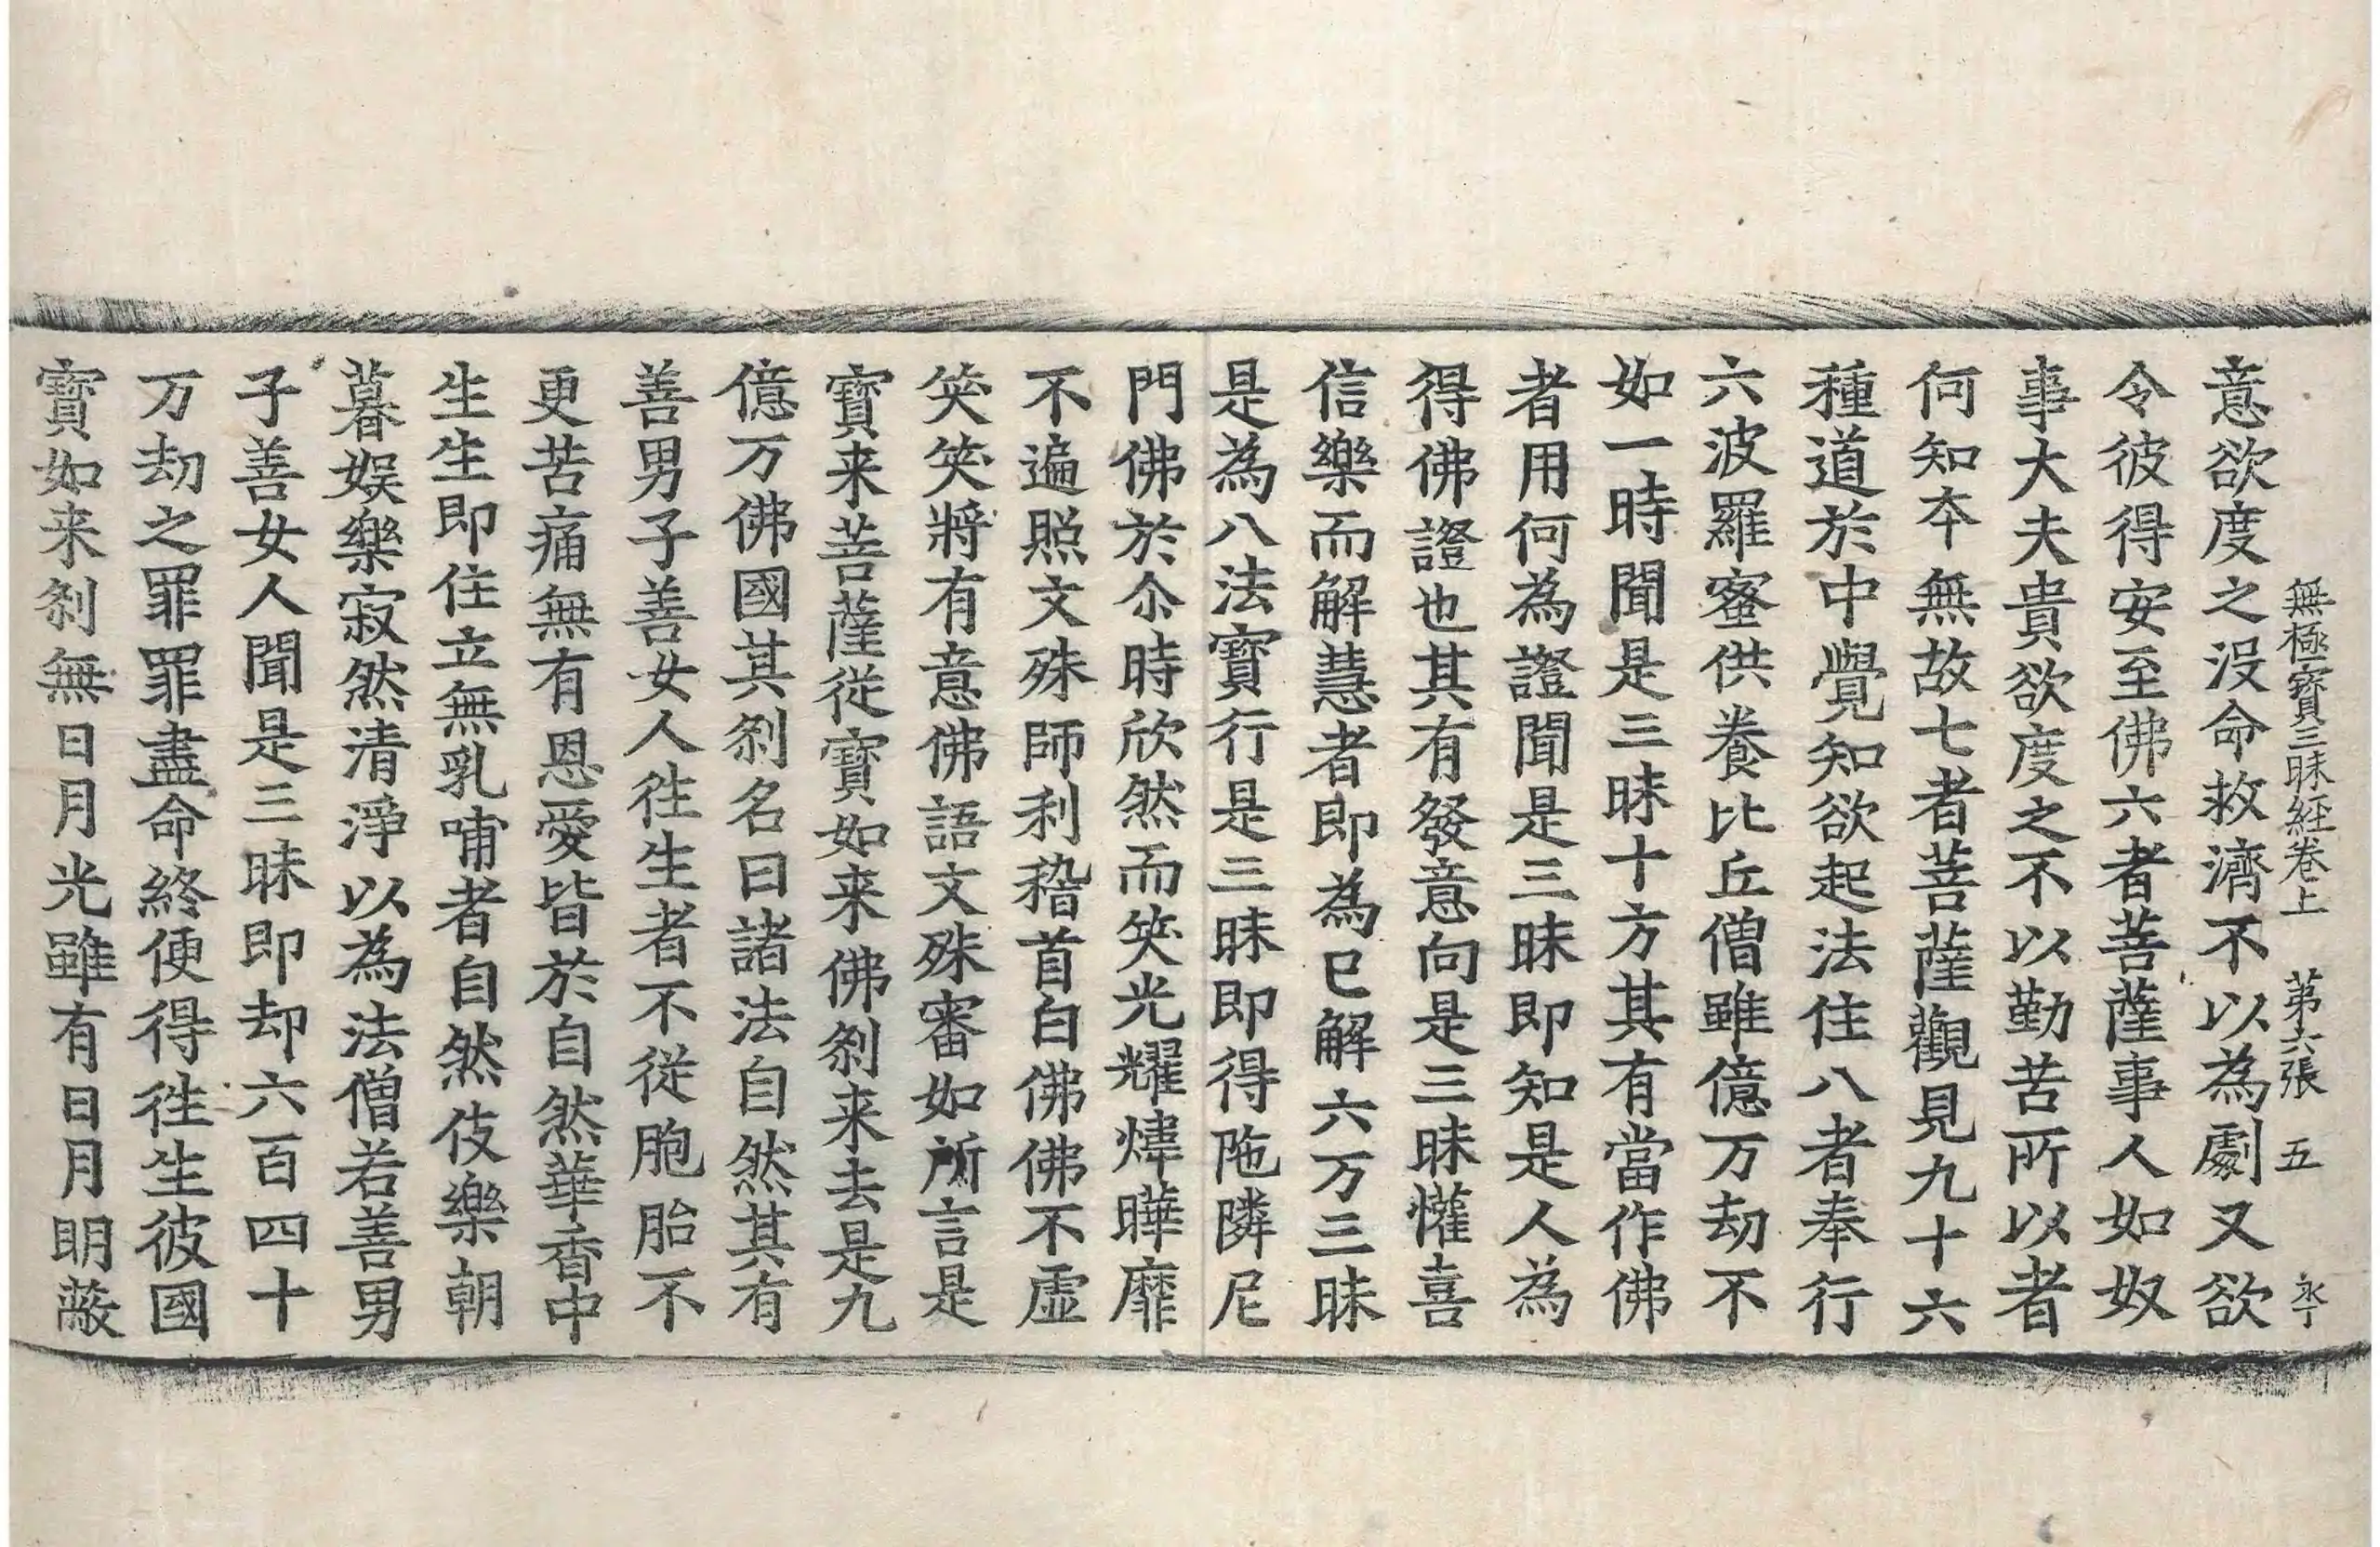 無極寶三昧経卷上　第六張　五　永丁
意欲度之没命救濟不以為劇又欲
令彼得安至佛六者菩薩事人如奴
事大夫貴欲度之不以勤苦所以者
何知本無故七者菩薩觀見九十六
種道於中覺知欲起法住八者奉行
六波羅蜜供養比丘僧雖億万劫不
如一時聞是三昧十方其有當作佛
者用何為證聞是三昧即知是人為
得佛證也其有發意向是三昧懽喜
信樂而解慧者即為已解六万三昧
是為八法寶行是三昧即得陁隣尼
門佛於尒時欣然而笑光耀煒曄靡
不遍照文殊師利稽首白佛佛不虛
笑笑將有意佛語文殊審如所言是
寶来菩薩從寶如来佛刹来去是九
億万佛國其刹名曰諸法自然其有
善男子善女人徃生者不從胞胎不
更苦痛無有恩愛皆於自然華香中
生生即住立無乳哺者自然伎樂朝
暮娱樂寂然清淨以為法僧若善男
子善女人聞是三昧即却六百四十
万劫之罪罪盡命終便得徃生彼國
寶如来刹無日月光雖有日月明蔽